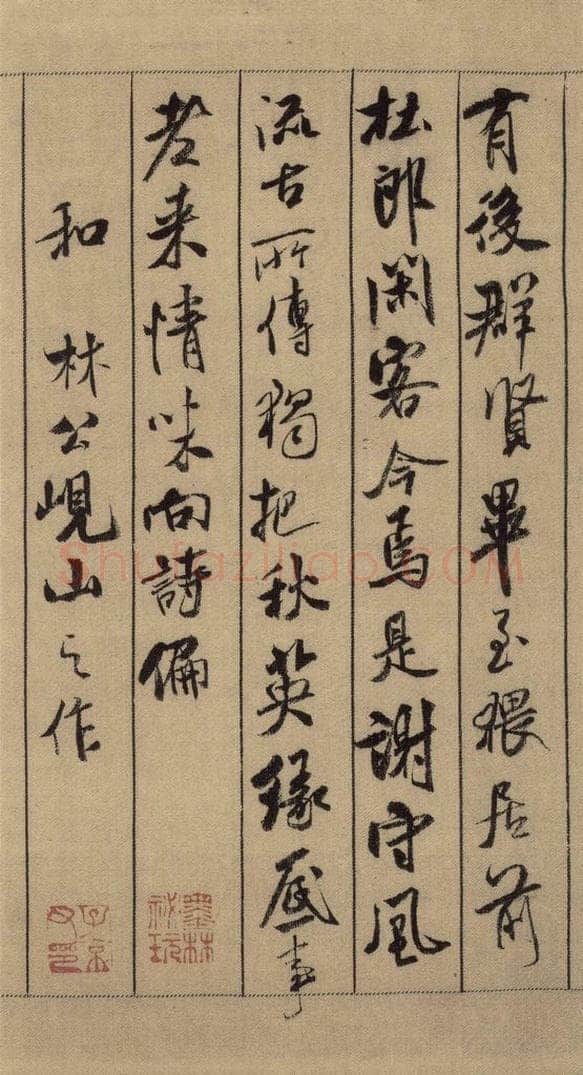 有後群賢畢至猥居前
杜郎閑客今焉是謝守風
流古所傳獨把秋英緣底事
老来情味向詩偏
和 林公峴山之作
墨林秘玩
子京父印
Shufaziliao.COM